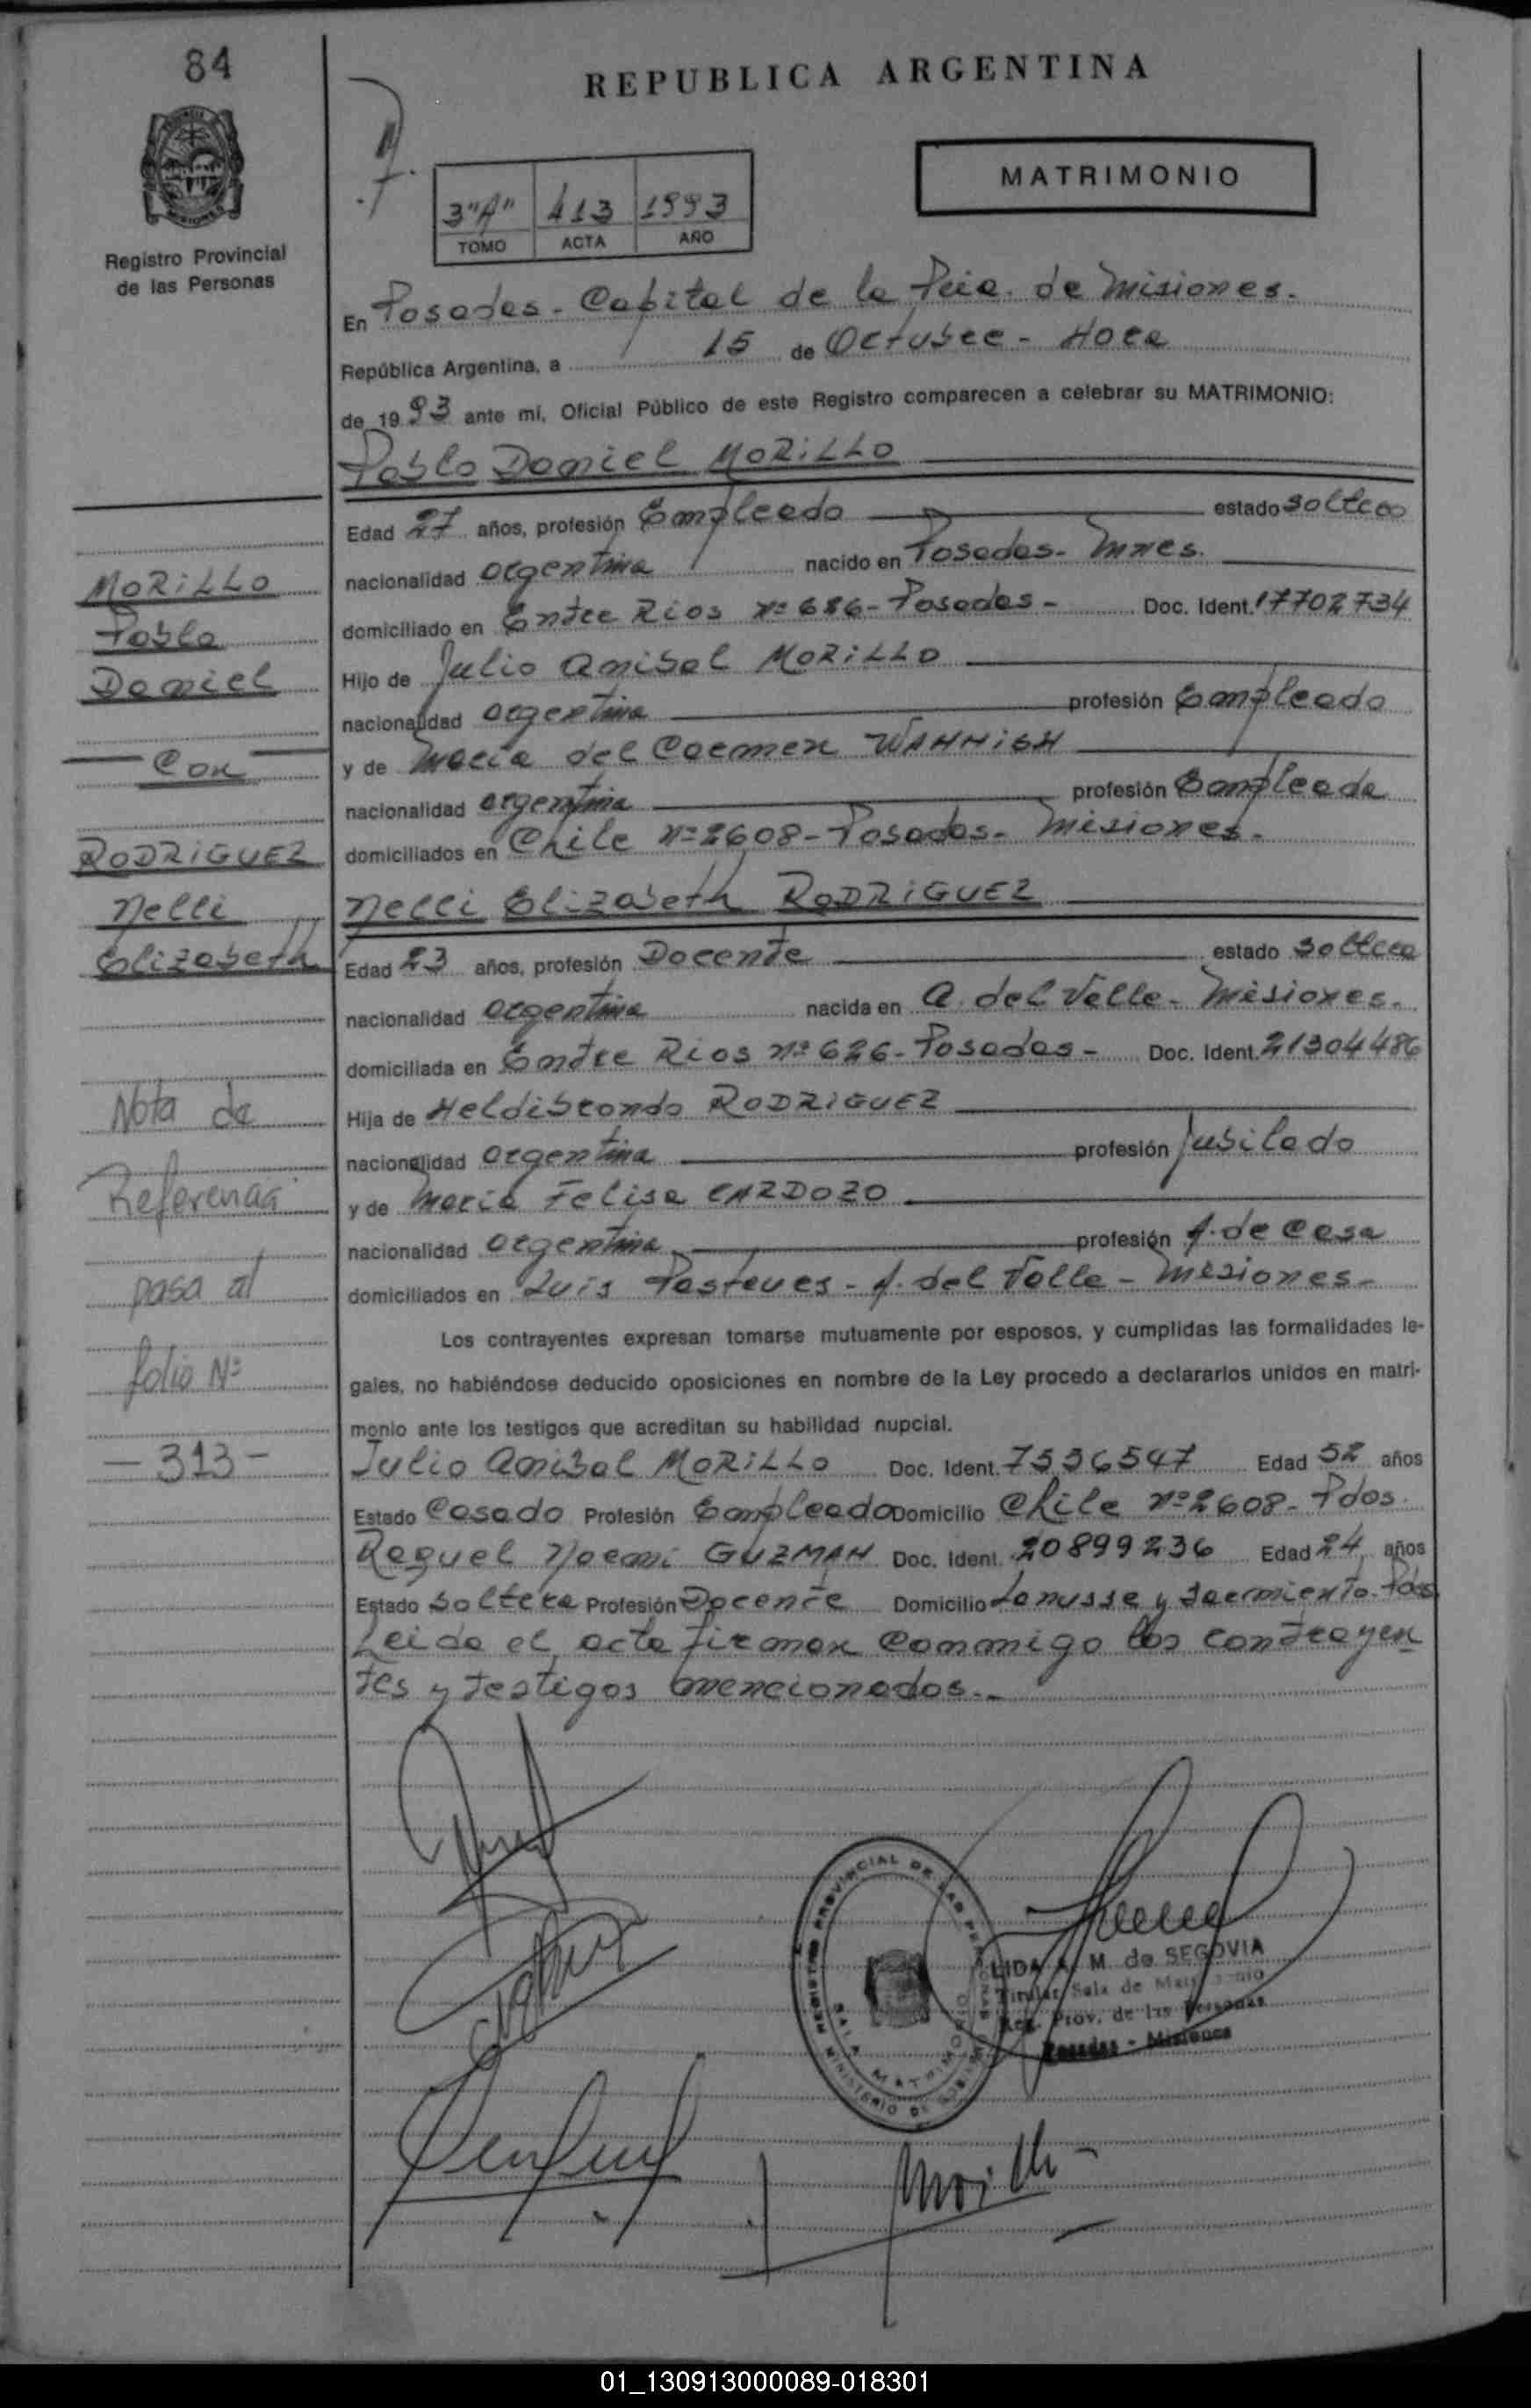 84
REPUBLICA ARGENTINA
MATRIMONIO
3"A" 413 1993
TOMO ACTA AÑO
Registro Provincial
de las Personas
En Posadas - Capital de la Pcia. de Misiones.
República Argentina, a 15 de Octubre - Hora
de 1993 ante mí, Oficial Público de este Registro comparecen a celebrar su MATRIMONIO:
Pablo Daniel MORILLO
Edad 27 años, profesión Empleado estado soltero
nacionalidad argentina nacido en Posadas - Mnes.
domiciliado en Entre Rios Nº 686 - Posadas - Doc. Ident. 17702734
Hijo de Julio Anibal MORILLO
nacionalidad argentina profesión Empleado
y de Maria del Carmen WANNISH
nacionalidad argentina profesión Empleada
domiciliados en Chile Nº 2608 - Posadas - Misiones.
Nelli Elizabeth RODRIGUEZ
Edad 23 años, profesión Docente estado soltera
nacionalidad argentina nacida en A. del Valle - Misiones.
domiciliada en Entre Rios Nº 626 - Posadas - Doc. Ident. 21304486
Hija de Heldibrondo RODRIGUEZ
nacionalidad argentina profesión Jubilado
y de Maria Felisa CARDOZO
nacionalidad argentina profesión A. de Casa
domiciliados en Luis - A. del Valle - Misiones -
Los contrayentes expresan tomarse mutuamente por esposos, y cumplidas las formalidades le-
gales, no habiéndose deducido oposiciones en nombre de la Ley procedo a declararlos unidos en matri-
monio ante los testigos que acreditan su habilidad nupcial.
Julio Anibal MORILLO Doc. Ident. 7536547 Edad 52 años
Estado Casado Profesión Empleado Domicilio Chile Nº 2608 - Pdas.
Raquel Noemi GUZMAN Doc. Ident. 20899236 Edad 24 años
Estado Soltera Profesión Docente Domicilio Lanusse y Sarmiento. Pdas
Leida el acta firman conmigo los contrayen
tes y testigos mencionados.-
MORILLO
Pablo
Daniel
- Con -
RODRIGUEZ
Nelli
Elizabeth
Nota de
Referencia
pasa al
folio Nº
- 313 -
REGISTRO PROVINCIAL DE LAS PERSONAS
MINISTERIO DE GOBIERNO
SALA MATRIMONIO
LIDA M. de SEGOVIA
Titular Sala de Matrimonio
Reg. Prov. de las Personas
Posadas - Misiones
01_130913000089-018301